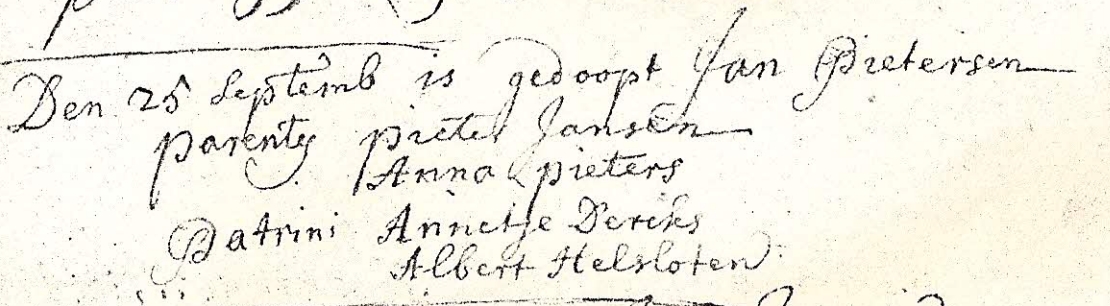 Den 25 Septemb is gedoopt Jan Pietersen
parenty pieter Jansen
Anna pieters
Patrini Annetje Dercks
Albert Helsloten